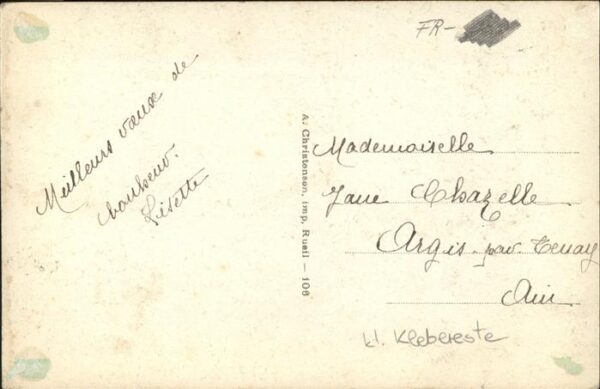 FR-
Meilleurs vœux de
bonheur.
Lisette
A. Christenson, imp. Rueil — 108
Mademoiselle
Jane Chazelle
Argis par Tenay
Ain
kl. Klebereste